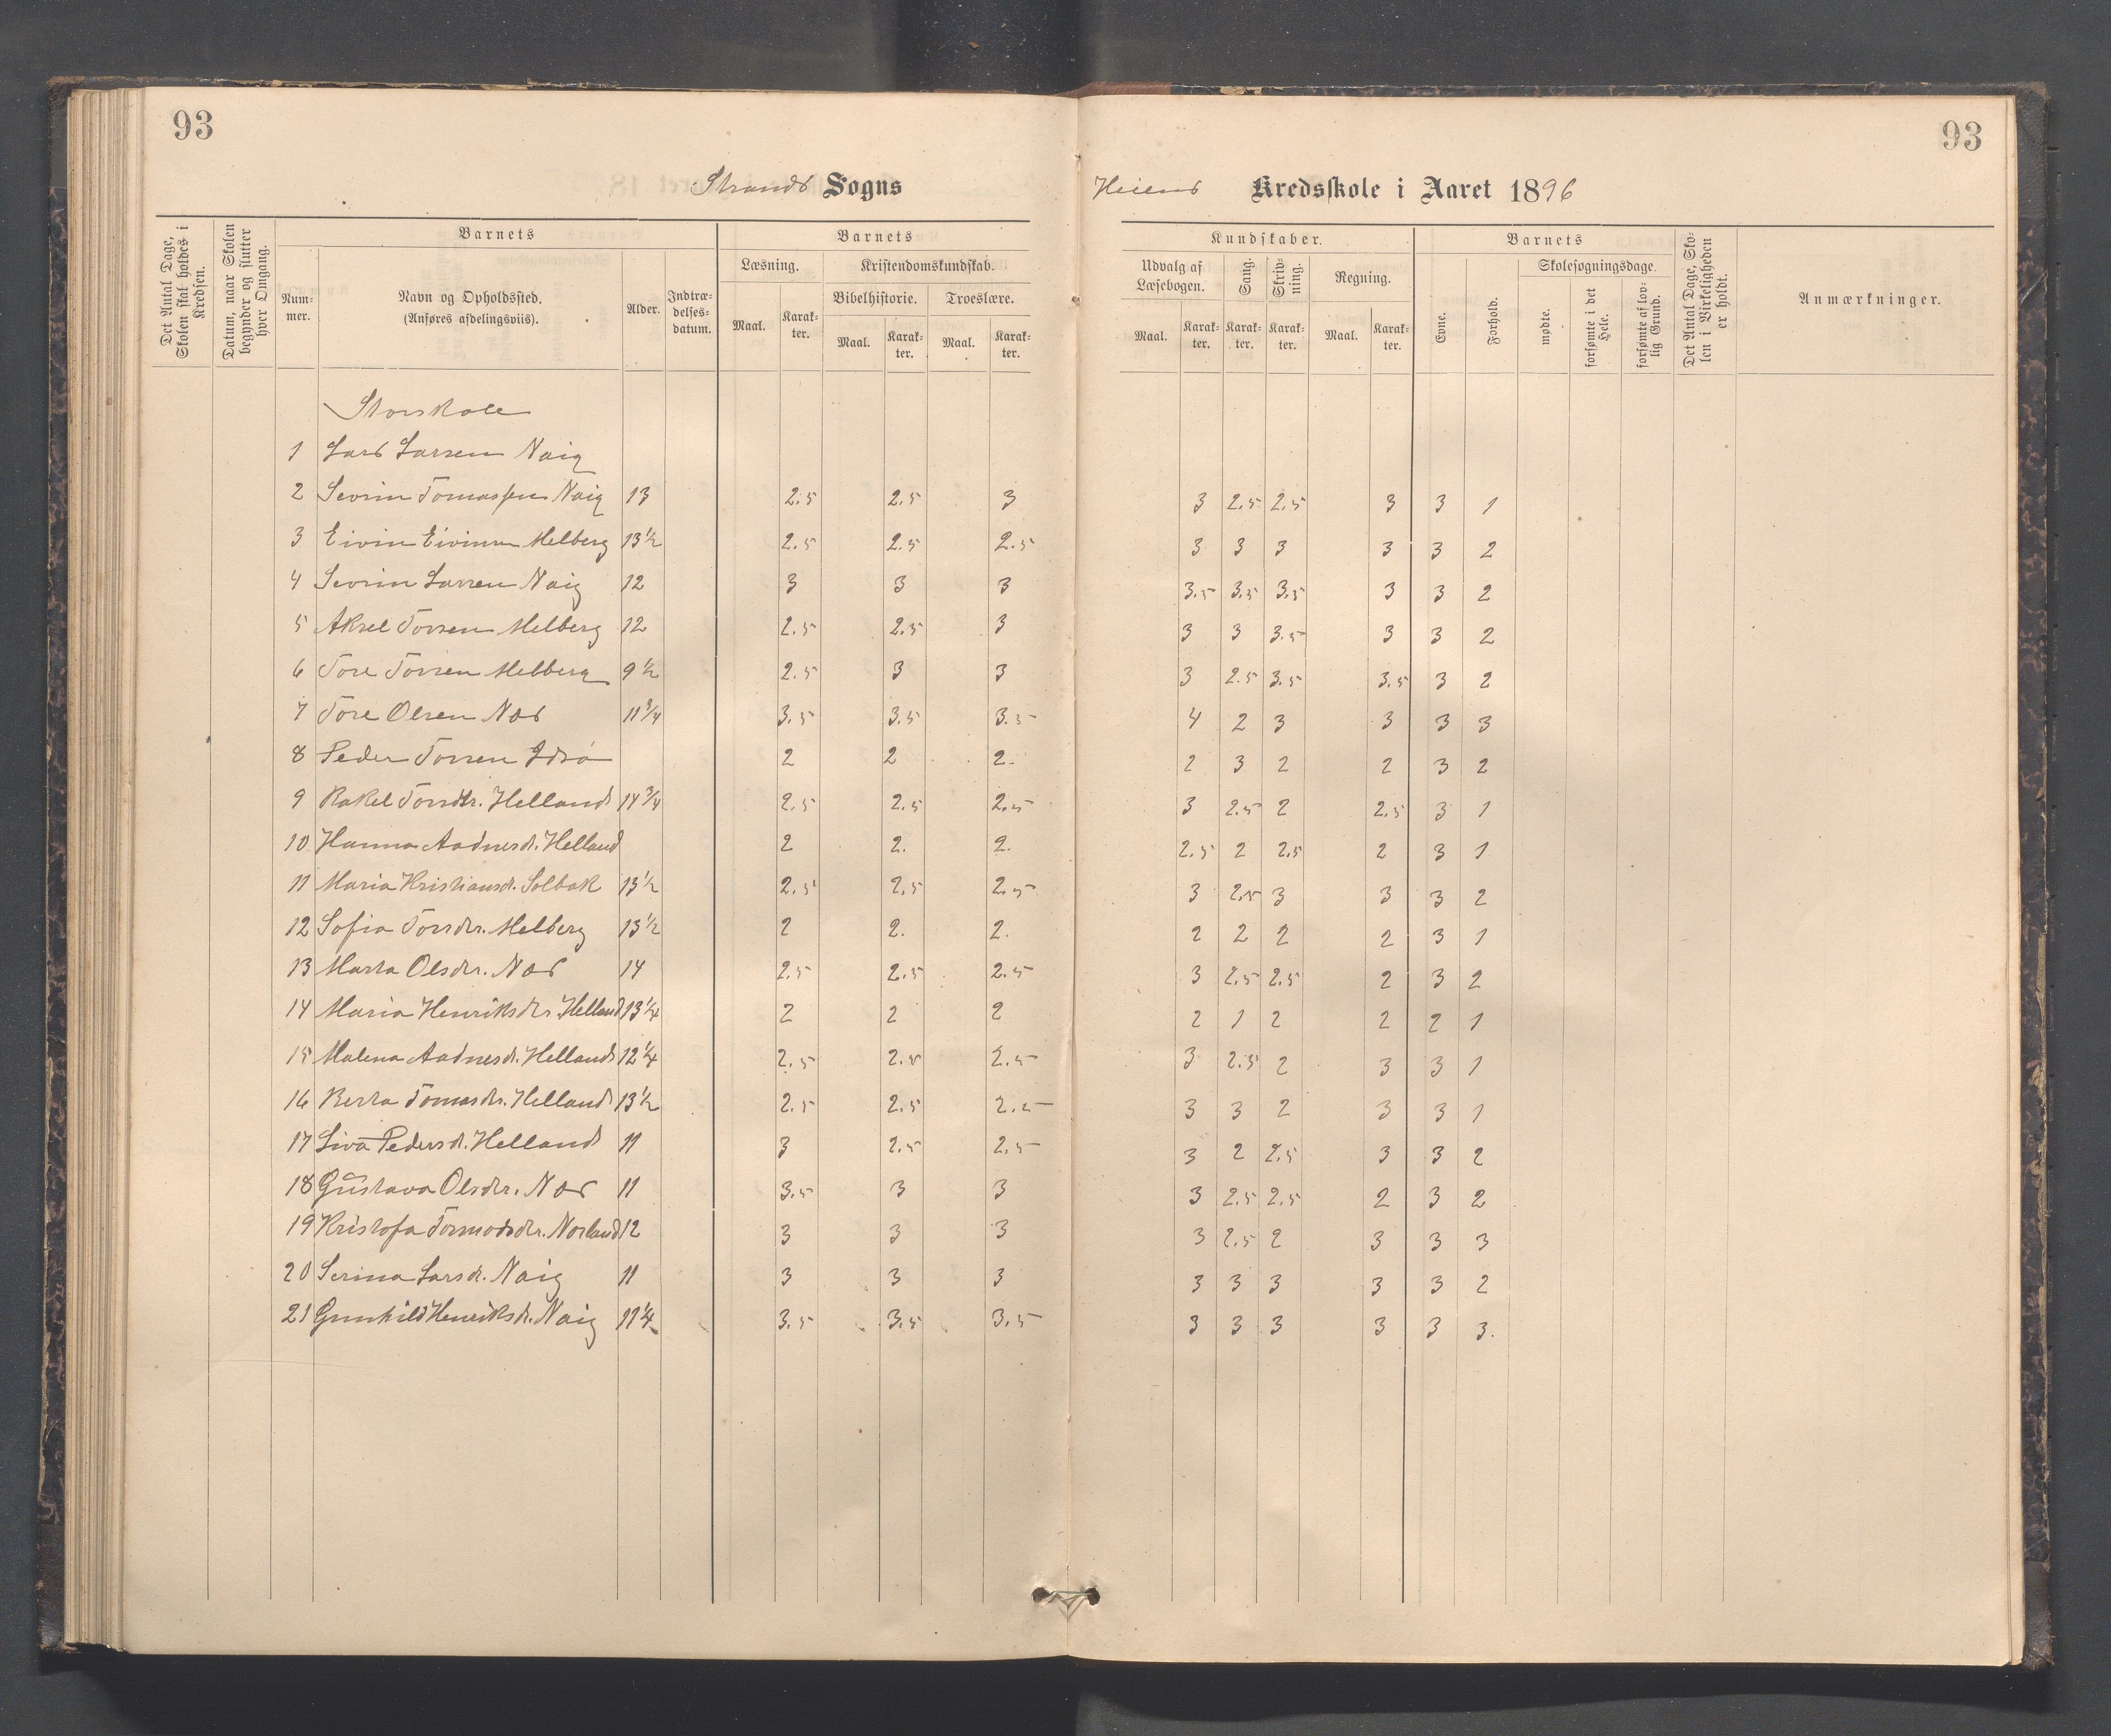 93
93
Strands Sogns
Heiens Kredsskole i Aaret 1896
Det Antal Dage, Skolen skal holdes i Kredsen.
Datum, naar Skolen begynder og slutter hver Omgang.
Barnets
Nummer.
Navn og Opholdssted.
(Anføres afdelingsviis).
Alder.
Indtrædelsesdatum.
Barnets
Læsning.
Kristendomskundskab.
Bibelhistorie.
Troeslære.
Maal. Karakter. Maal. Karakter. Maal. Karakter.
Kundskaber.
Udvalg af Læsebogen.
Sang.
Skrivning.
Regning.
Maal. Karakter. Karakter. Karakter. Maal. Karakter.
Barnets
Evne.
Forhold.
Skolesøgningsdage.
mødte.
forsømte i det Hele.
forsømte af lovlig Grund.
Det Antal Dage, Skolen i Virkeligheden er holdt.
Anmærkninger.
Storskole
1 Lars Larsen Naig
2 Sevrin Tomassen Naig 13 2.5 2.5 3 3 2.5 2.5 3 3 1
3 Eivin Eivinsen Melberg 13½ 2.5 2.5 2.5 3 3 3 3 3 2
4 Sevrin Larsen Naig 12 3 3 3 3.5 3.5 3.5 3 3 2
5 Aksel Torsen Melberg 12 2.5 2.5 3 3 3 3.5 3 3 2
6 Tore Torsen Melberg 9½ 2.5 3 3 3 2.5 3.5 3.5 3 2
7 Tore Olsen Næs 11¾ 3.5 3.5 3.5 4 2 3 3 3 3
8 Peder Torsen Idsø 2 2 2. 2 3 2 2 3 2
9 Rakel Torsdtr. Helland 14¾ 2.5 2.5 2.5 3 2.5 2 2.5 3 1
10 Hanna Aadnesd. Helland 2 2. 2. 2.5 2 2.5 2 3 1
11 Maria Kristiansd. Solbak 13½ 2.5 2.5 2.5 3 2.5 3 3 3 2
12 Sofia Torsdtr. Melberg 13½ 2 2. 2. 2 2 2 2 3 1
13 Marta Olsdtr. Næs 14 2.5 2.5 2.5 3 2.5 2.5 2 3 2
14 Maria Henriksdtr Helland 13¼ 2 2 2 2 1 2 2 2 1
15 Malena Aadnesd. Helland 12¼ 2.5 2.5 2.5 3 2.5 2 3 3 1
16 Berta Tomasdtr. Helland 13½ 2.5 2.5 2.5 3 3 2 3 3 1
17 Siva Pedersd. Helland 11 3 2.5 2.5 3 2 2.5 3 3 2
18 Gustava Olsdtr. Næs 11 3.5 3 3 3 2.5 2.5 2 3 2
19 Kristofa Tormodsdtr. Norland 12 3 3 3 3 2.5 2 3 3 3
20 Serina Larsd. Naig 11 3 3 3 3 3 3 3 3 2
21 Gunhild Henriksd. Naig 11¼ 3.5 3.5 3.5 3 3 3 3 3 3.